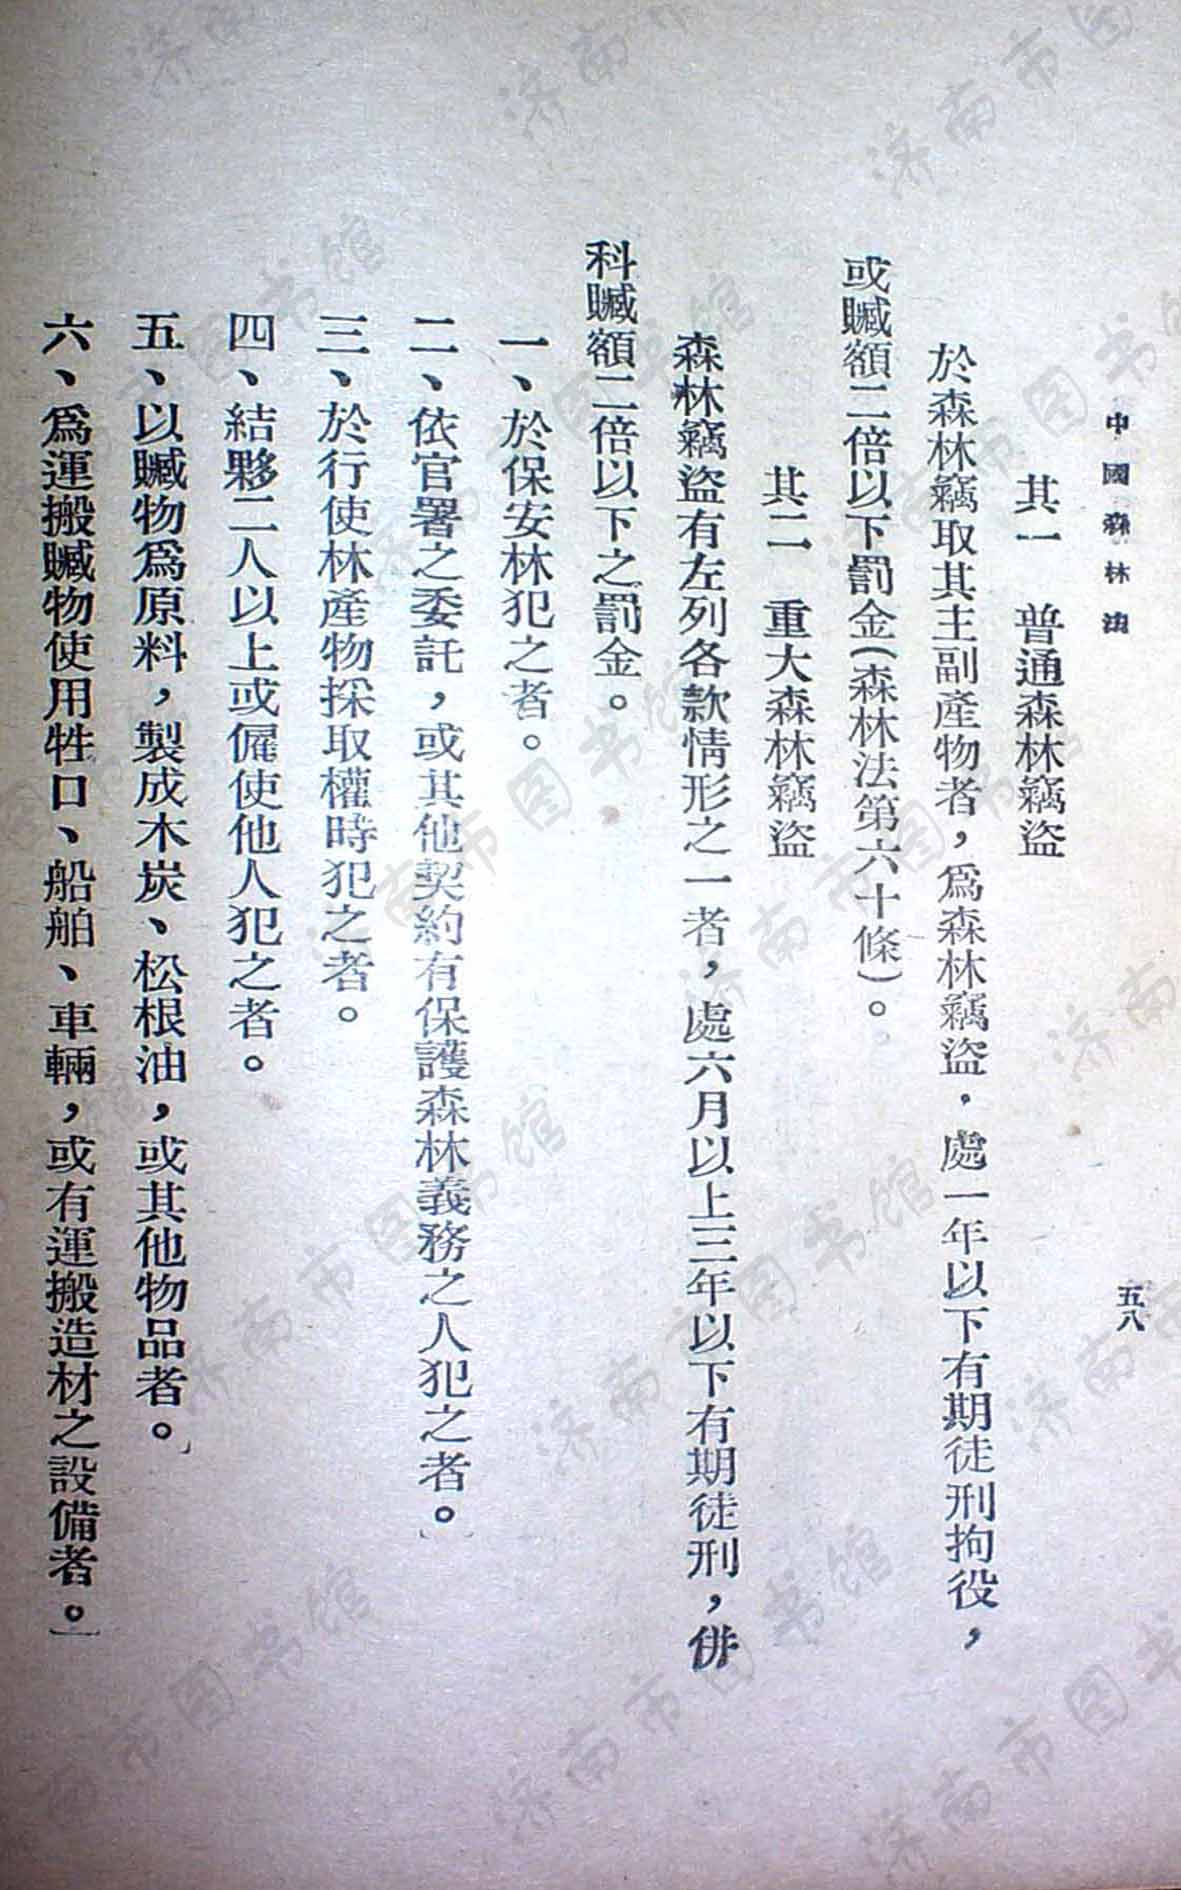 中國森林法
五八
其一　普通森林竊盜
於森林竊取其主副產物者，爲森林竊盜．處一年以下有期徒刑拘役，
或贓額二倍以下罰金（森林法第六十條）。
其二　重大森林竊盜
森林竊盜有左列各款情形之一者，處六月以上三年以下有期徒刑，併
科贓額二倍以下之罰金。
一、於保安林犯之者。
二、依官署之委託，或其他契約有保護森林義務之人犯之者。
三、於行使林產物採取權時犯之者。
四、結夥二人以上或僱使他人犯之者。
五、以贓物爲原料，製成木炭、松根油，或其他物品者。
六、爲運搬贓物使用牲口、船舶、車輛，或有運搬造材之設備者。
济南市图书馆